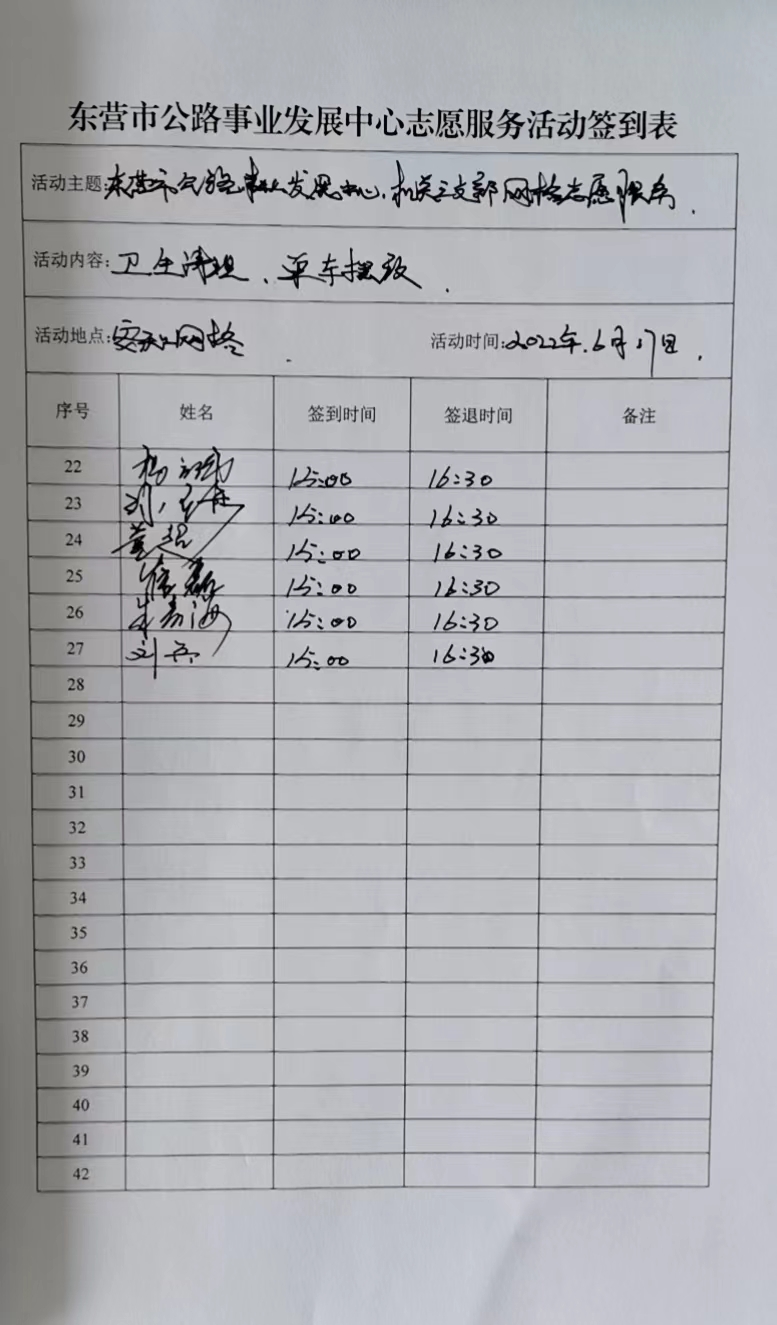 东营市公路事业发展中心志愿服务活动签到表
活动主题:东营市公路事业发展中心,机关三支部网格志愿服务.
活动内容:卫生清理、单车摆放.
活动地点:安和网格. 活动时间:2022年.6月17日.
序号 姓名 签到时间 签退时间 备注
22 15:00 16:30
23 15:00 16:30
24 15:00 16:30
25 15:00 16:30
26 15:00 16:30
27 15:00 16:30
28
29
30
31
32
33
34
35
36
37
38
39
40
41
42